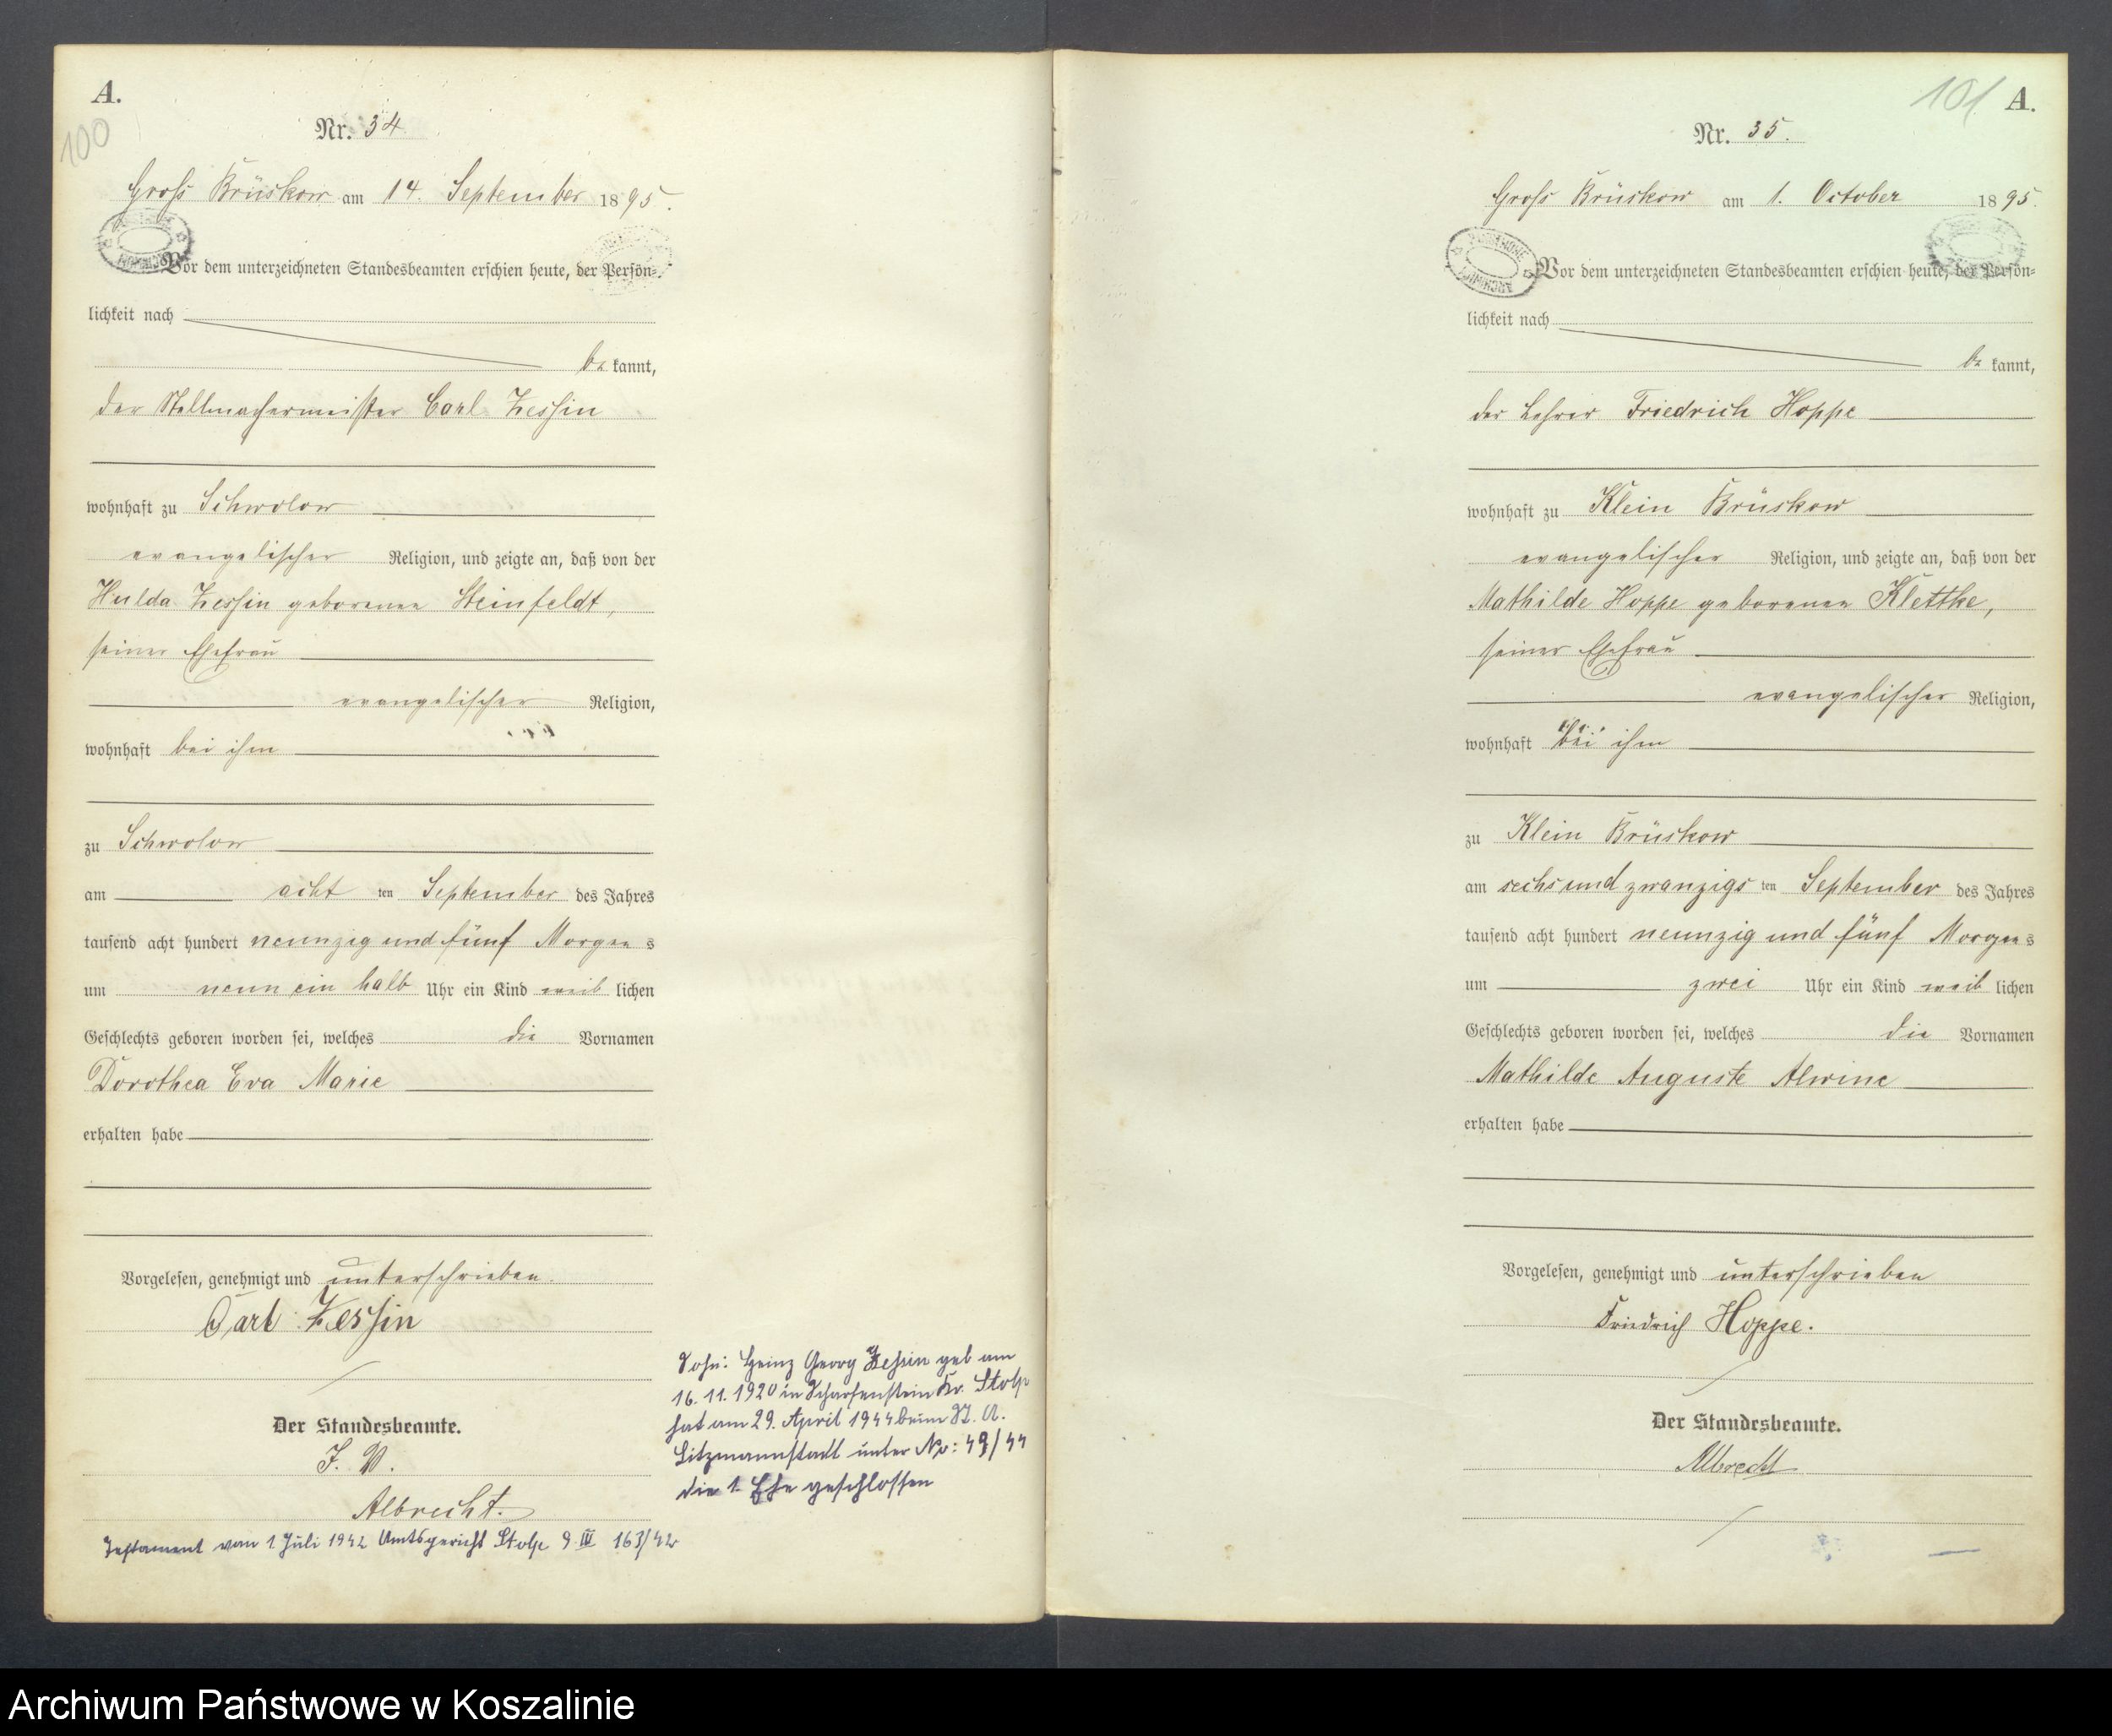 A.
100
Nr. 34
Groß Brüskow am 14. September 1895.
Vor dem unterzeichneten Standesbeamten erschien heute, der Persön=
lichkeit nach
be kannt,
der Stellmachermeister Carl Zessin
wohnhaft zu Schwolow
evangelischer Religion, und zeigte an, daß von der
Hulda Zessin geborenen Steinfeldt,
seiner Ehefrau
evangelischer Religion,
wohnhaft bei ihm
zu Schwolow
am acht ten September des Jahres
tausend acht hundert neunzig und fünf Morgens
um neun ein halb Uhr ein Kind weib lichen
Geschlechts geboren worden sei, welches die Vornamen
Dorothea Eva Marie
erhalten habe
Vorgelesen, genehmigt und unterschrieben.
Carl Zessin
Der Standesbeamte.
J. V.
Albrecht.
Testament vom 1. Juli 1942 Amtsgericht Stolp 9 IV 163/42
Sohn: Heinz Georg Zessin geb am
16. 11. 1920 in Scharfenstein Kr. Stolp
hat am 29. April 1944 beim St. A.
Litzmannstadt unter Nr: 49/44
die 1. Ehe geschlossen
101 A.
Nr. 35.
Groß Brüskow am 1. October 1895.
Vor dem unterzeichneten Standesbeamten erschien heute, der Persön=
lichkeit nach
be kannt,
der Lehrer Friedrich Hoppe
wohnhaft zu Klein Brüskow
evangelischer Religion, und zeigte an, daß von der
Mathilde Hoppe geborenen Klettke,
seiner Ehefrau
evangelischer Religion,
wohnhaft bei ihm
zu Klein Brüskow
am sechs und zwanzigs ten September des Jahres
tausend acht hundert neunzig und fünf Morgens
um zwei Uhr ein Kind weib lichen
Geschlechts geboren worden sei, welches die Vornamen
Mathilde Auguste Alwine
erhalten habe
Vorgelesen, genehmigt und unterschrieben
Friedrich Hoppe.
Der Standesbeamte.
Albrecht
Archiwum Państwowe w Koszalinie